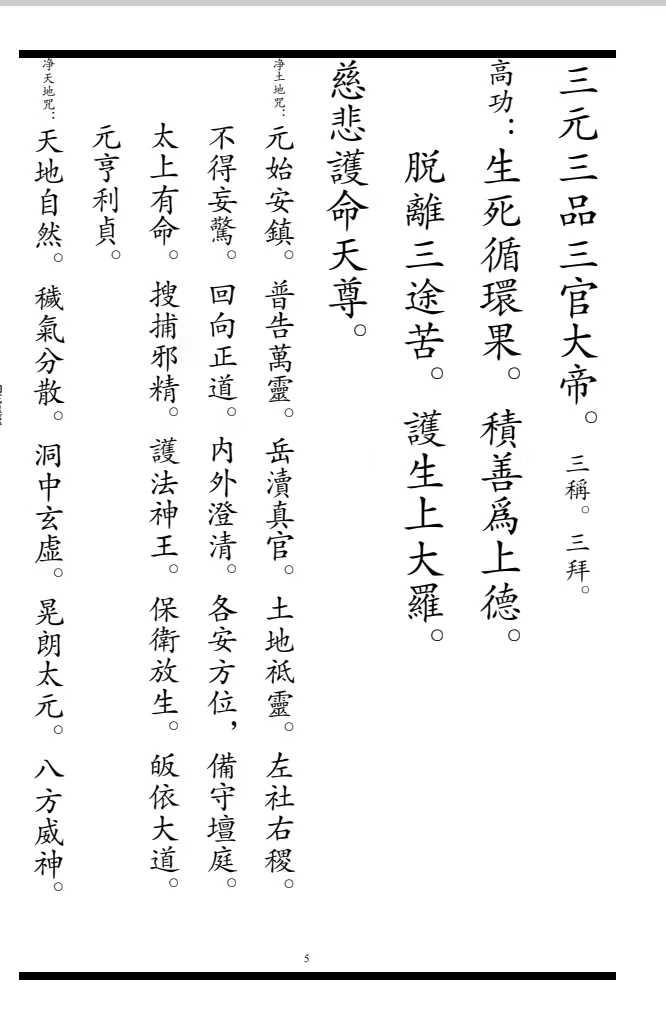 三元三品三官大帝。三稱。三拜。
高功：生死循環果。積善爲上德。
脱離三途苦。護生上大羅。
慈悲護命天尊。
净土地咒：元始安鎮。普告萬靈。岳瀆真官。土地祗靈。左社右稷。
不得妄驚。回向正道。内外澄清。各安方位，備守壇庭。
太上有命。搜捕邪精。護法神王。保衛放生。皈依大道。
元亨利貞。
净天地咒：天地自然。穢氣分散。洞中玄虛。晃朗太元。八方威神。
5